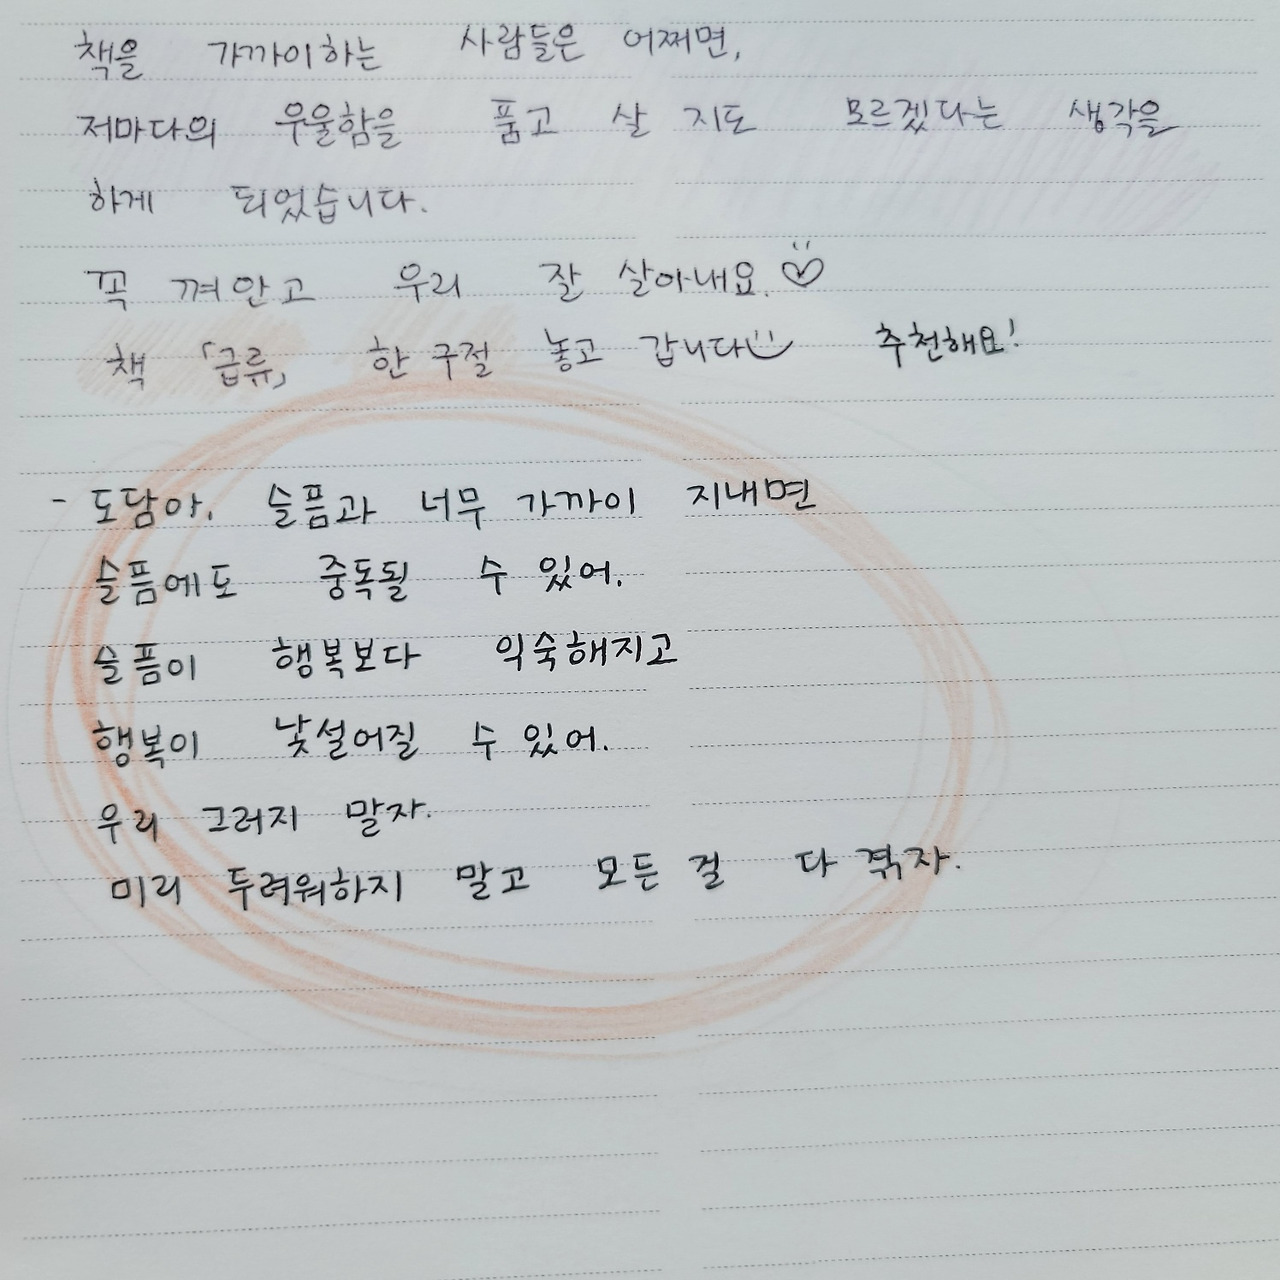 책을 가까이하는 사람들은 어쩌면,
저마다의 우울함을 품고 살 지도 모르겠다는 생각을
하게 되었습니다.
꼭 껴안고 우리 잘 살아내요.♡
책 「급류」 한 구절 놓고 갑니다 추천해요!
- 도담아. 슬픔과 너무 가까이 지내면
슬픔에도 중독될 수 있어.
슬픔이 행복보다 익숙해지고
행복이 낯설어질 수 있어.
우리 그러지 말자.
미리 두려워하지 말고 모든 걸 다 겪자.